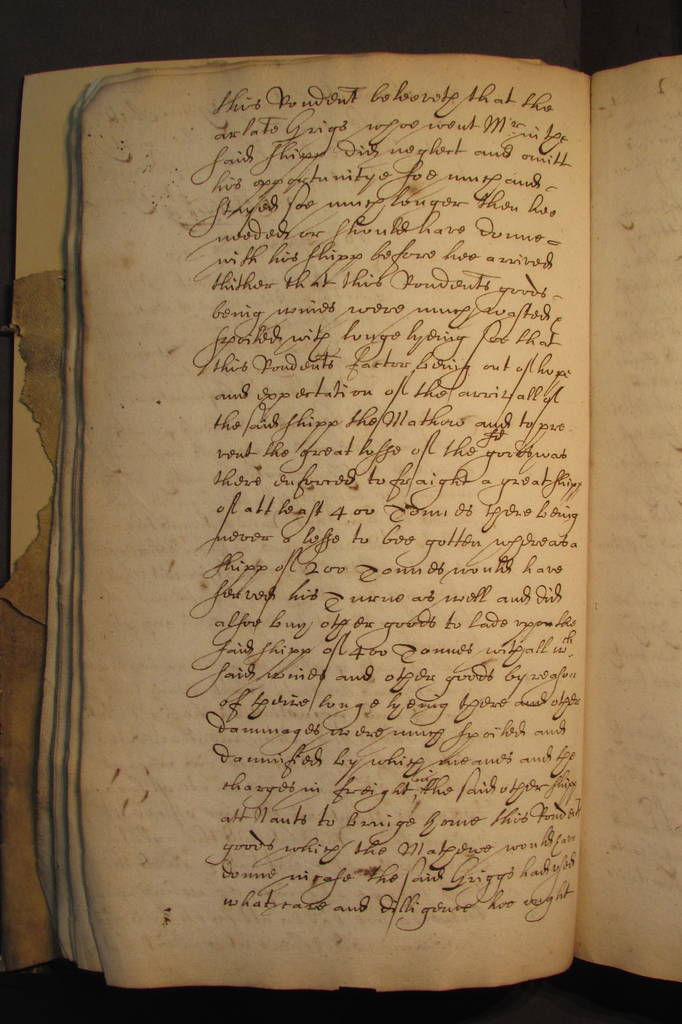 this Rondent beleeveth that the
arlate Grigs whoe went Mr in the
said shipp did neglect and omitt
his opportunitye soe much and
stayed soe much longer then hee
needed or should have donne
with his shipp before hee arrived
thither that this Rondents goods
being wines were much wasted
spoiled with longe lyeing soe that
this Rondents factor being out of hope
and expectation of the arrivall of
the said shipp the Mathew and to pre
vent the great losse of the sd goods was
there enforced to fraight a great shipp
of att least 400 Tonnes there being
never a lesse to bee gotten whereas a
shipp of 200 Tonnes would have
served his Turne as well and did
alsoe buy other goods to lade upon the
said shipp of 400 Tonnes withall wch
said wines and other goods by reason
of theire longe lyeing there and other
dammages were much spoiled and
damnified by which meanes and the
charges in freight the said other shipp
att Nants to bringe home this Rondents
goods which the Mathewe would have
donne in case the said Griggs had used
what care and dilligence hee ought